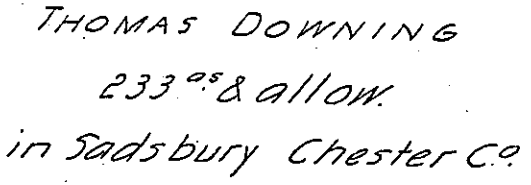 THOMAS DOWNING
233 as. & allow.
in Sadsbury Chester Co.